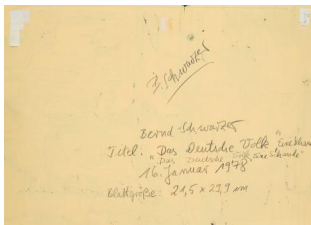 B. Schwarzer
Bernd Schwarzer
Titel: "Das Deutsche Volk" Eine Schande
"Das Deutsche Volk Eine Schande"
16. Januar 1978
Blattgröße: 21,5 x 29,9 cm